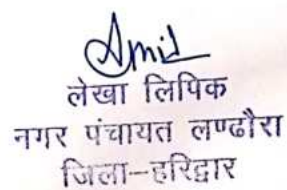 Amit
लेखा लिपिक
नगर पंचायत लण्ढौरा
जिला-हरिद्वार